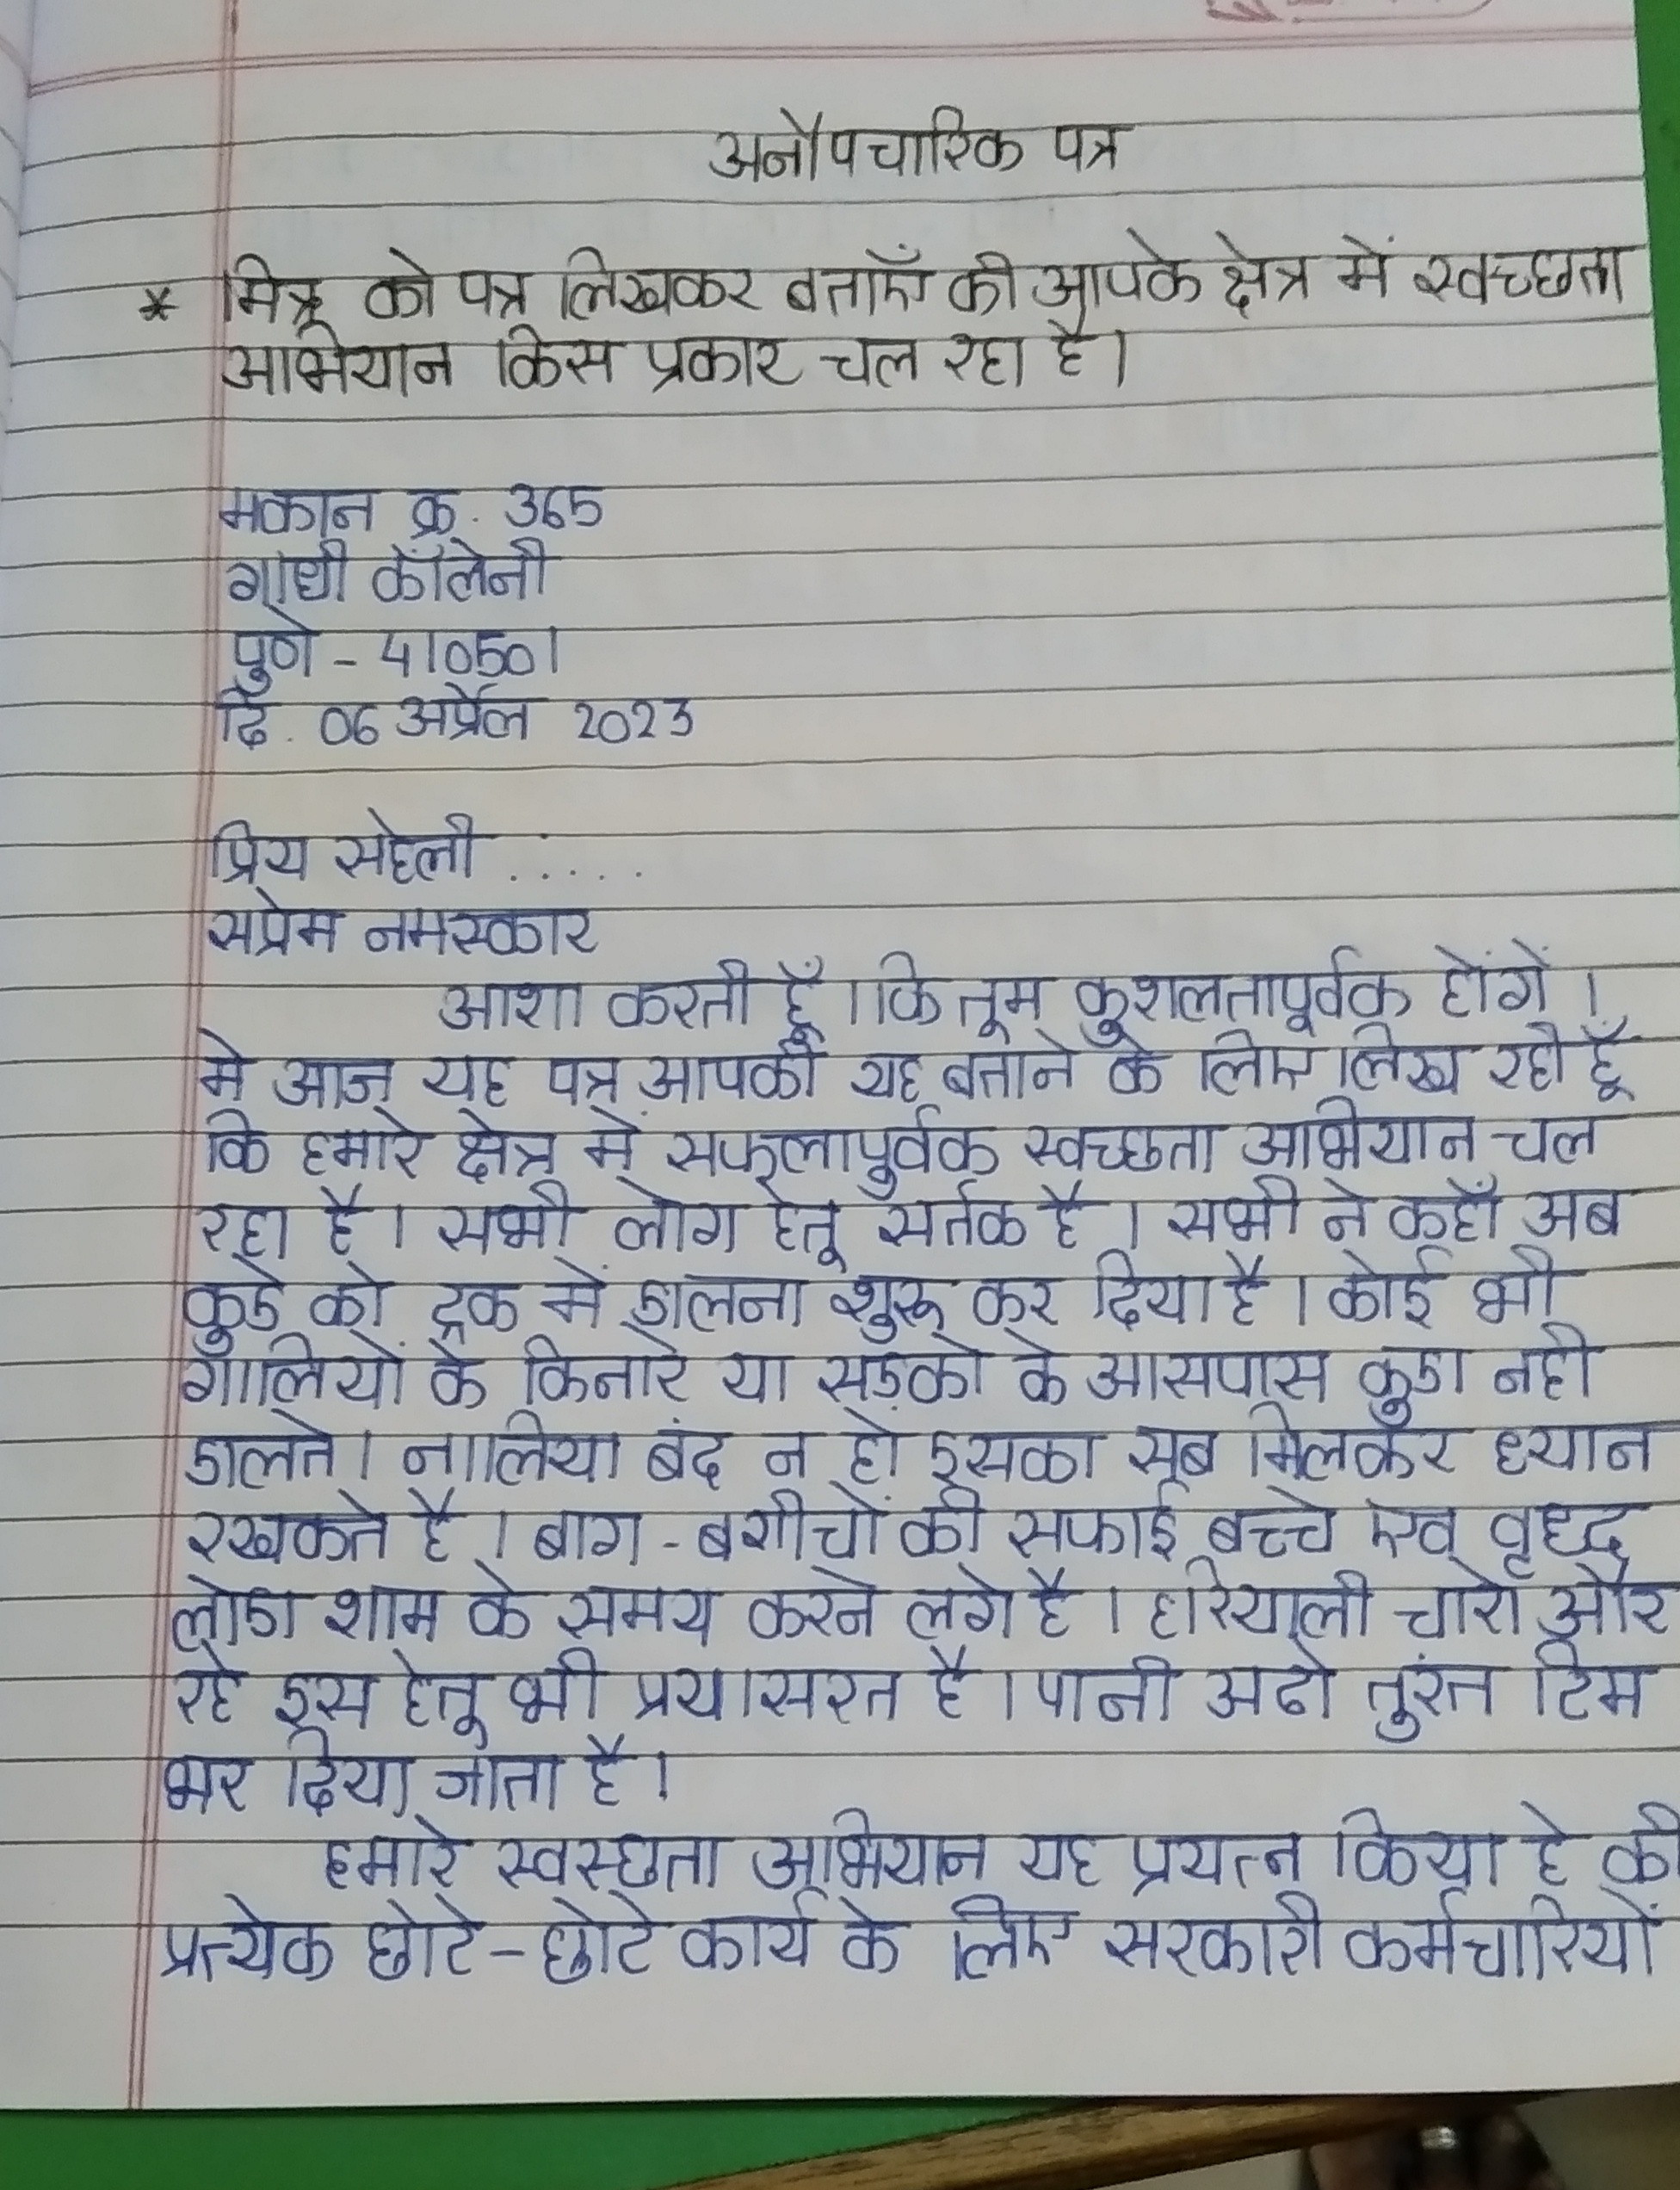 अनौपचारिक पत्र
* मित्र को पत्र लिखकर बताएँ की आपके क्षेत्र में स्वच्छता
अभियान किस प्रकार चल रहा है।
मकान क्र. 365
गांधी कॉलेनी
पुणे - 410501
दि. 06 अप्रैल 2023
प्रिय सहेली .....
सप्रेम नमस्कार
आशा करती हूँ। कि तूम कुशलतापूर्वक होंगें।
मे आज यह पत्र आपकी यह बताने के लिए लिख रही हूँ
कि हमारे क्षेत्र में सफलापुर्वक स्वच्छता अभियान चल
रहा है। सभी लोग हेतू सर्तक है। सभी ने कहाँ अब
कुडे को ट्रक में डालना शुरू कर दिया है। कोई भी
गालियों के किनारे या सड़को के आसपास कुडा नही
डालते। नालिया बंद न हो इसका सब मिलकर ध्यान
रखकते है। बाग - बगीचों की सफाई बच्चे एव वृध्द
लोग शाम के समय करने लगे है। हरियाली चारो और
रहे इस हेतु भी प्रयासरत है। पानी तुरंत टिम
भर दिया जाता है।
हमारे स्वस्छता अभियान यह प्रयत्न किया हे की
प्रत्येक छोटे-छोटे कार्य के लिए सरकारी कर्मचारियों